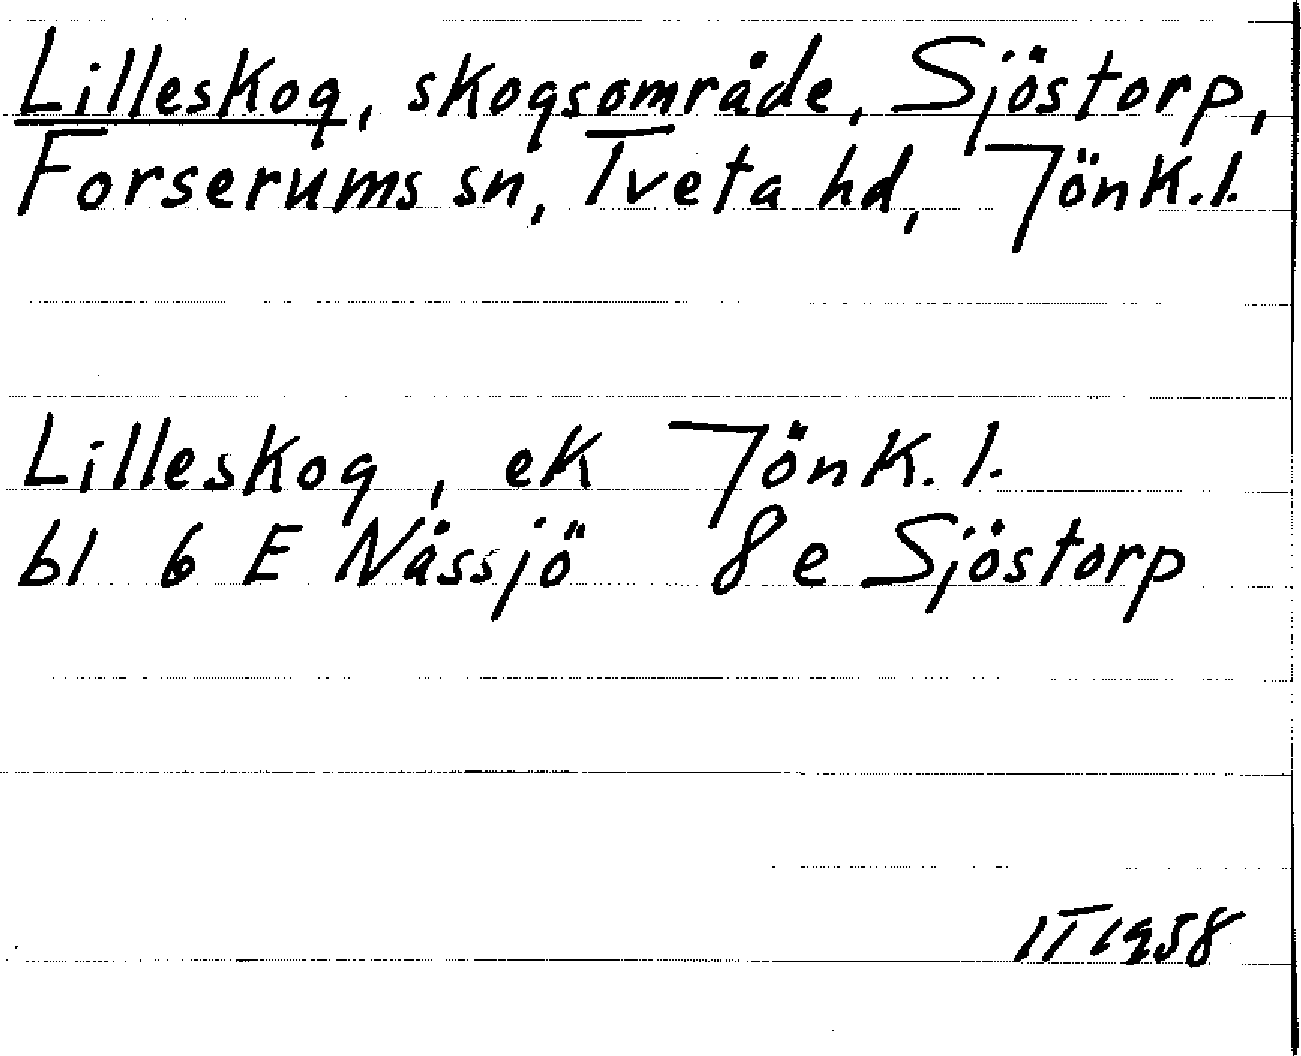 Lilleskog, skogsområde, Sjöstorp,
Forserums sn, Tveta hd, Jönk.l.
Lilleskog, ek Jönk.l.
bl 6 E Nässjö 8 e Sjöstorp
IT 1958